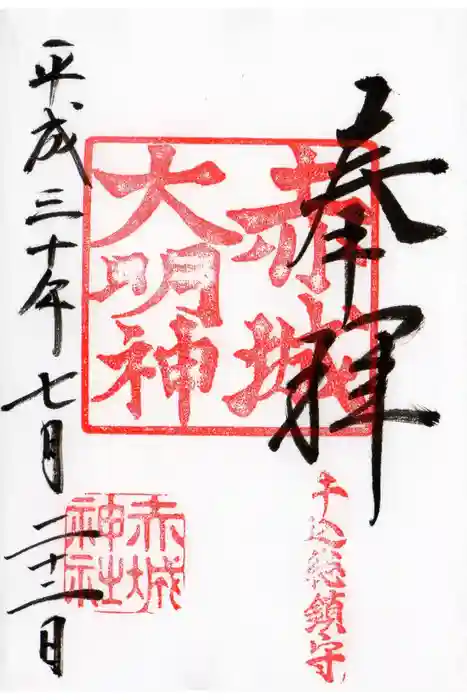 奉拝
赤城
大明神
牛込総鎮守
赤城
神社
平成三十年七月二十二日